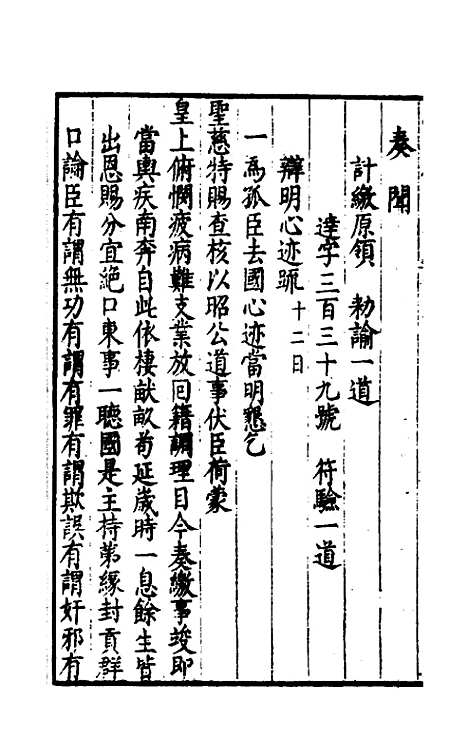 奏聞
計繳原領　勑諭一道
達字三百三十九號　符驗一道
辯明心迹疏十二日
一為孤臣去國心迹當明懇乞
聖慈特賜查核以昭公道事伏臣荷蒙
皇上俯憫疲病難支業放回籍調理目今奏繳事竣即
當輿疾南奔自此依棲畎畝茍延歲時一息餘生皆
出恩賜分宜絕口東事一聽國是主持第緣封貢群
口論臣有謂無功有謂有罪有謂欺誤有謂奸邪有